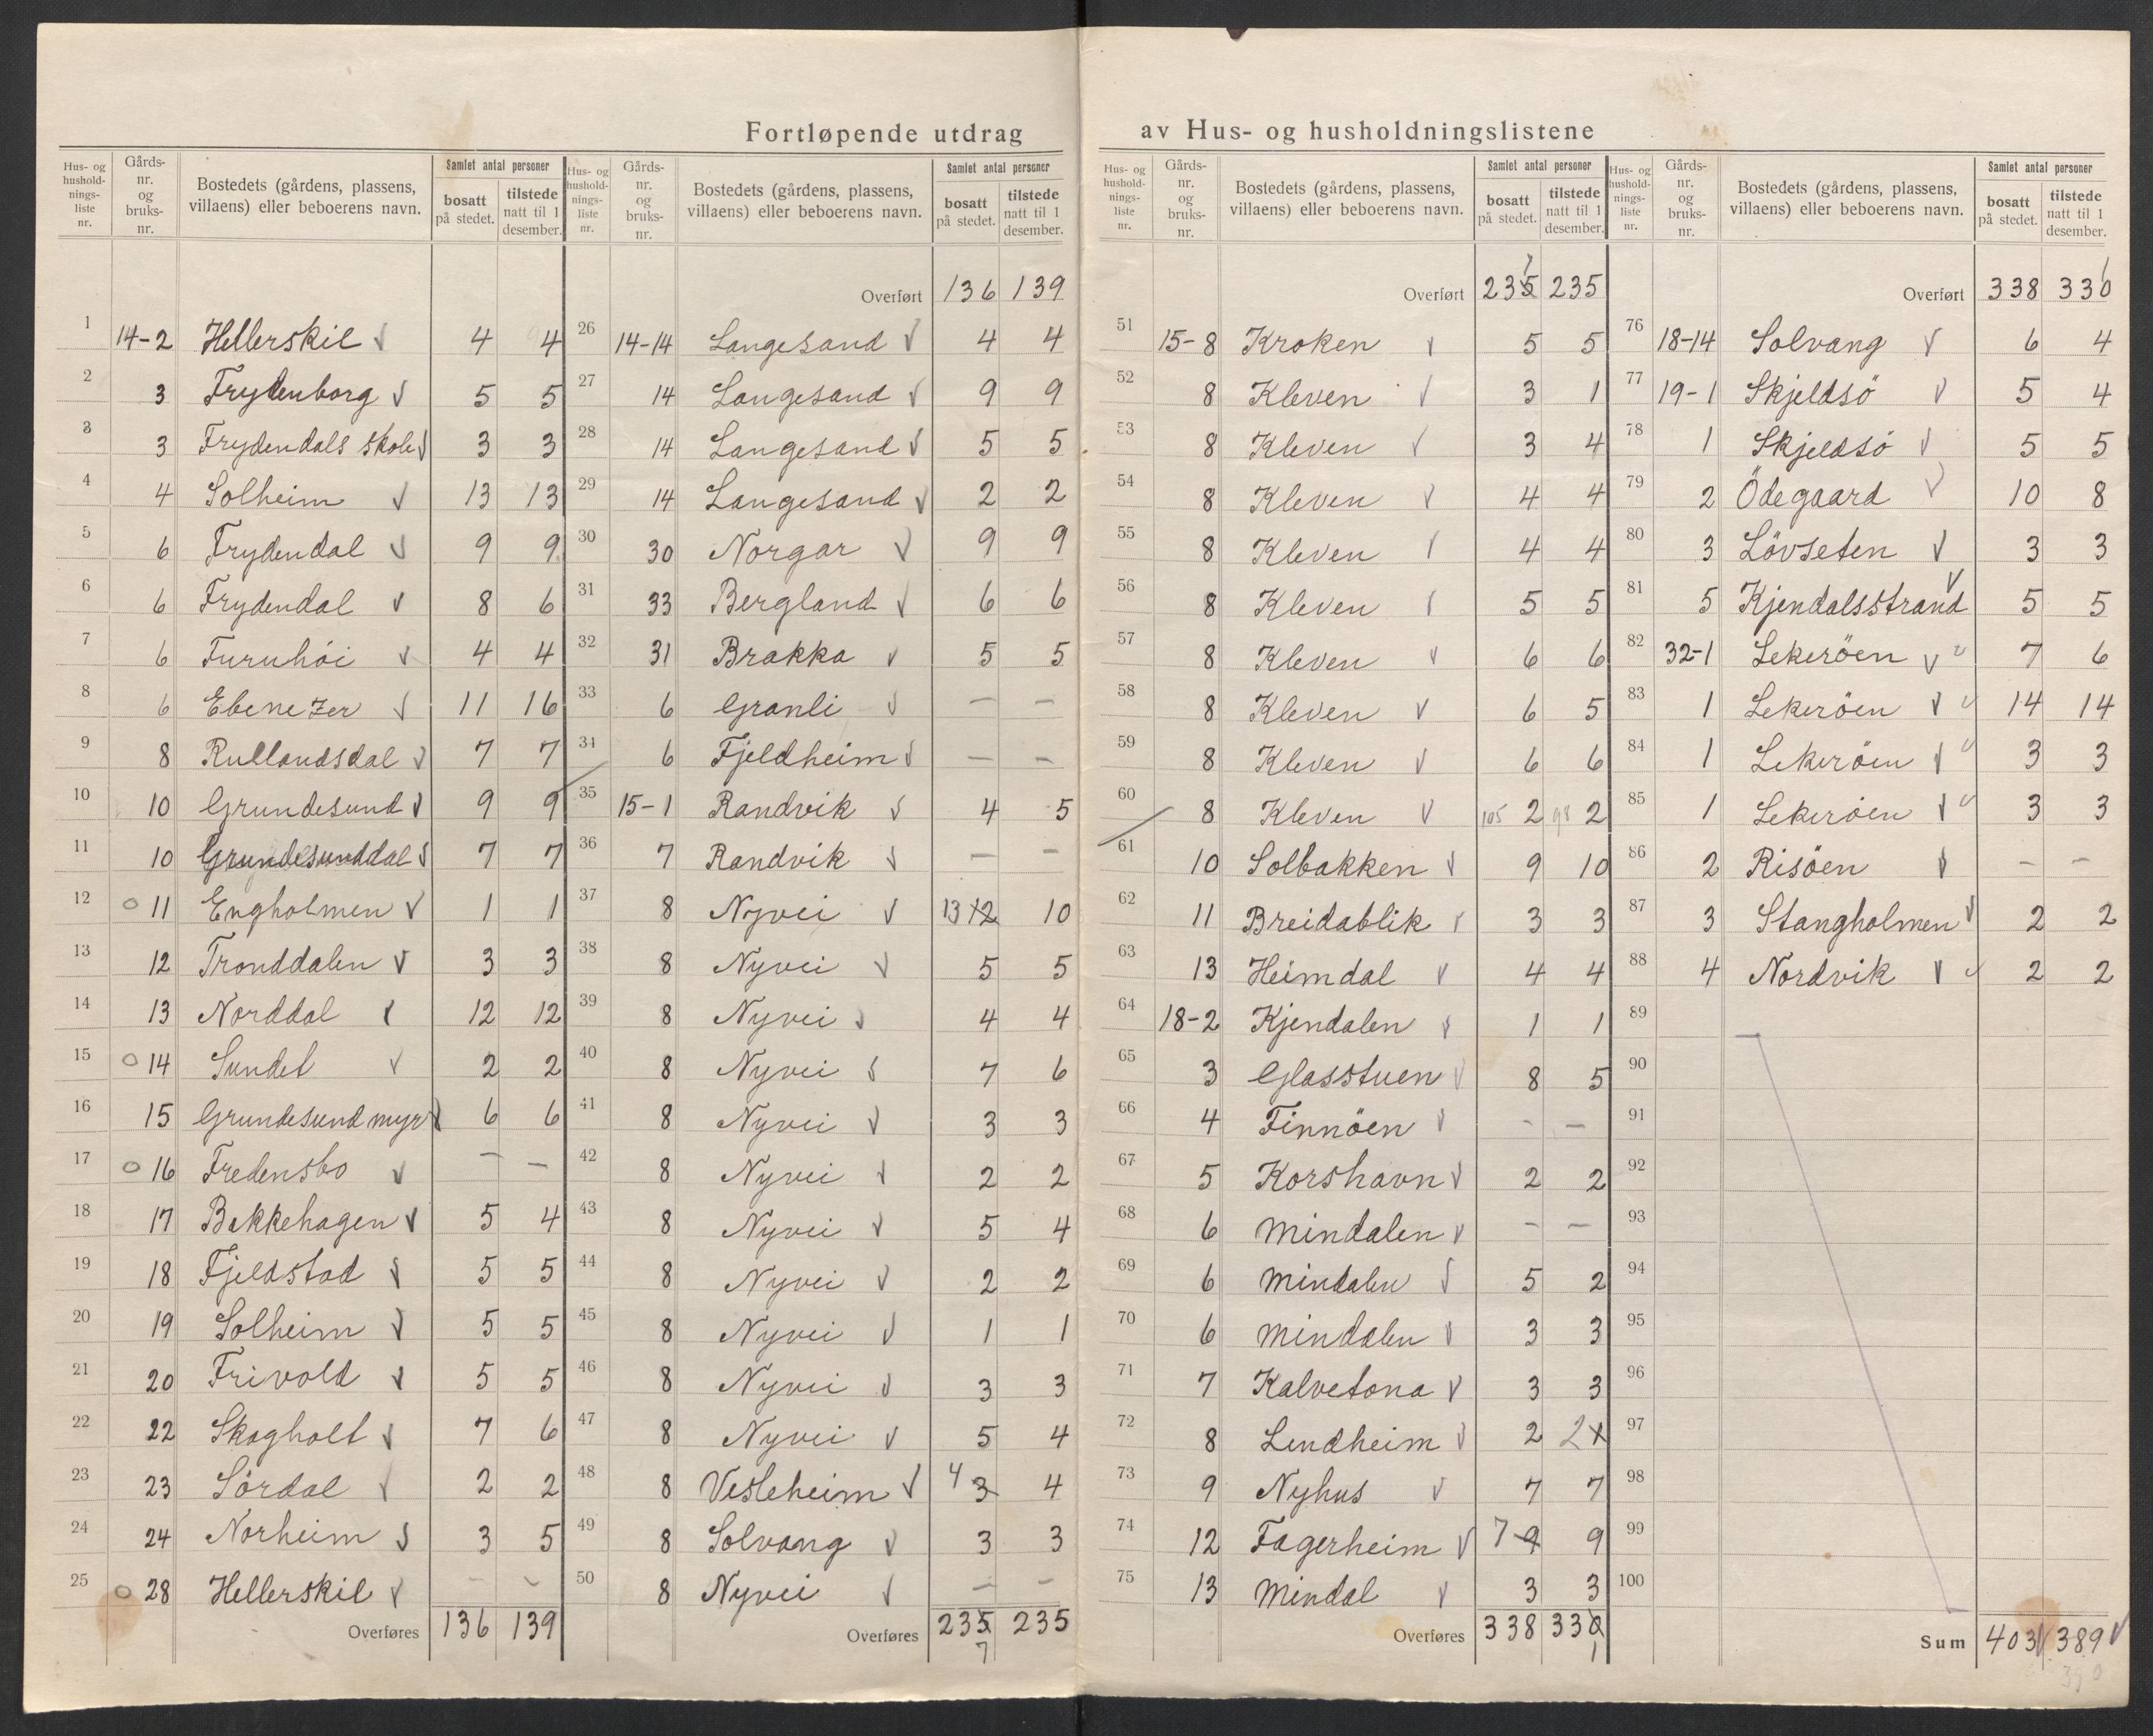 Fortløpende utdrag av Hus- og husholdningslistene
Hus- og hushold-nings-liste nr. | Gårds-nr. og bruks-nr. | Bostedets (gårdens, plassens, villaens) eller beboerens navn. | Samlet antal personer | bosatt på stedet. | tilstede natt til 1 desember.
1 14-2 Hellerskil √ 4 4
2 3 Frydenborg √ 5 5
3 3 Frydendals skole √ 3 3
4 4 Solheim √ 13 13
5 6 Frydendal √ 9 9
6 6 Frydendal √ 8 6
7 6 Furuhöi √ 4 4
8 6 Ebenezer √ 11 16
9 8 Rullandsdal √ 7 7
10 10 Grundesund √ 9 9
11 10 Grundesunddal √ 7 7
12 o 11 Engholmen √ 1 1
13 12 Tronddalen √ 3 3
14 13 Norddal √ 12 12
15 o 14 Sundet √ 2 2
16 15 Grundesund myr √ 6 6
17 o 16 Fredensbo √ – –
18 17 Bakkehagen √ 5 4
19 18 Fjeldstad √ 5 5
20 19 Solheim √ 5 5
21 20 Frivold √ 5 5
22 22 Skogholt √ 7 6
23 23 Sördal √ 2 2
24 24 Norheim √ 3 5
25 o 28 Hellerskil √ – –
Overføres 136 139
Hus- og hushold-nings-liste nr. | Gårds-nr. og bruks-nr. | Bostedets (gårdens, plassens, villaens) eller beboerens navn. | Samlet antal personer | bosatt på stedet. | tilstede natt til 1 desember.
Overført 136 139
26 14-14 Langesand √ 4 4
27 14 Langesand √ 9 9
28 14 Langesand √ 5 5
29 14 Langesand √ 2 2
30 30 Norgar √ 9 9
31 33 Bergland √ 6 6
32 31 Brakka √ 5 5
33 6 Granli √ – –
34 6 Fjeldheim √ – –
35 15-1 Randvik √ 4 5
36 7 Randvik √ – –
37 8 Nyvei √ 13 12 10
38 8 Nyvei √ 5 5
39 8 Nyvei √ 4 4
40 8 Nyvei √ 7 6
41 8 Nyvei √ 3 3
42 8 Nyvei √ 2 2
43 8 Nyvei √ 5 4
44 8 Nyvei √ 2 2
45 8 Nyvei √ 1 1
46 8 Nyvei √ 3 3
47 8 Nyvei √ 5 4
48 8 Vesleheim √ 4 3 4
49 8 Solvang √ 3 3
50 8 Nyvei √ – –
Overføres 235 235
7
Hus- og hushold-nings-liste nr. | Gårds-nr. og bruks-nr. | Bostedets (gårdens, plassens, villaens) eller beboerens navn. | Samlet antal personer | bosatt på stedet. | tilstede natt til 1 desember.
7
Overført 235 235
51 15-8 Kroken √ 5 5
52 8 Kleven √ 3 1
53 8 Kleven √ 3 4
54 8 Kleven √ 4 4
55 8 Kleven √ 4 4
56 8 Kleven √ 5 5
57 8 Kleven √ 6 6
58 8 Kleven √ 6 5
59 8 Kleven √ 6 6
60 8 Kleven √ 105 2 98 2
61 10 Solbakken √ 9 10
62 11 Breidablik √ 3 3
63 13 Heimdal √ 4 4
64 18-2 Kjendalen √ 1 1
65 3 Glasstuen √ 8 5
66 4 Finnöen √ – –
67 5 Korshavn √ 2 2
68 6 Mindalen √ – –
69 6 Mindalen √ 5 2
70 6 Mindalen √ 3 3
71 7 Kalvetona √ 3 3
72 8 Lendheim √ 2 2
73 9 Nyhus √ 7 7
74 12 Fagerheim √ 7 9 9
75 13 Mindal √ 3 3
Overføres 338 330
1
Hus- og hushold-nings-liste nr. | Gårds-nr. og bruks-nr. | Bostedets (gårdens, plassens, villaens) eller beboerens navn. | Samlet antal personer | bosatt på stedet. | tilstede natt til 1 desember.
1
Overført 338 330
76 18-14 Solvang √ 6 4
77 19-1 Skjeldsö √ 5 4
78 1 Skjeldsö √ 5 5
79 2 Ödegaard √ 10 8
80 3 Lövseten √ 3 3
81 5 Kjendalsstrand √ 5 5
82 32-1 Lekeröen √ 7 6
83 1 Lekeröen √ 14 14
84 1 Lekeröen √ 3 3
85 1 Lekeröen √ 3 3
86 2 Risöen √ – –
87 3 Stangholmen √ 2 2
88 4 Nordvik √ 2 2
89
90
91
92
93
94
95
96
97
98
99
100
Sum 403 √ 389 √
390